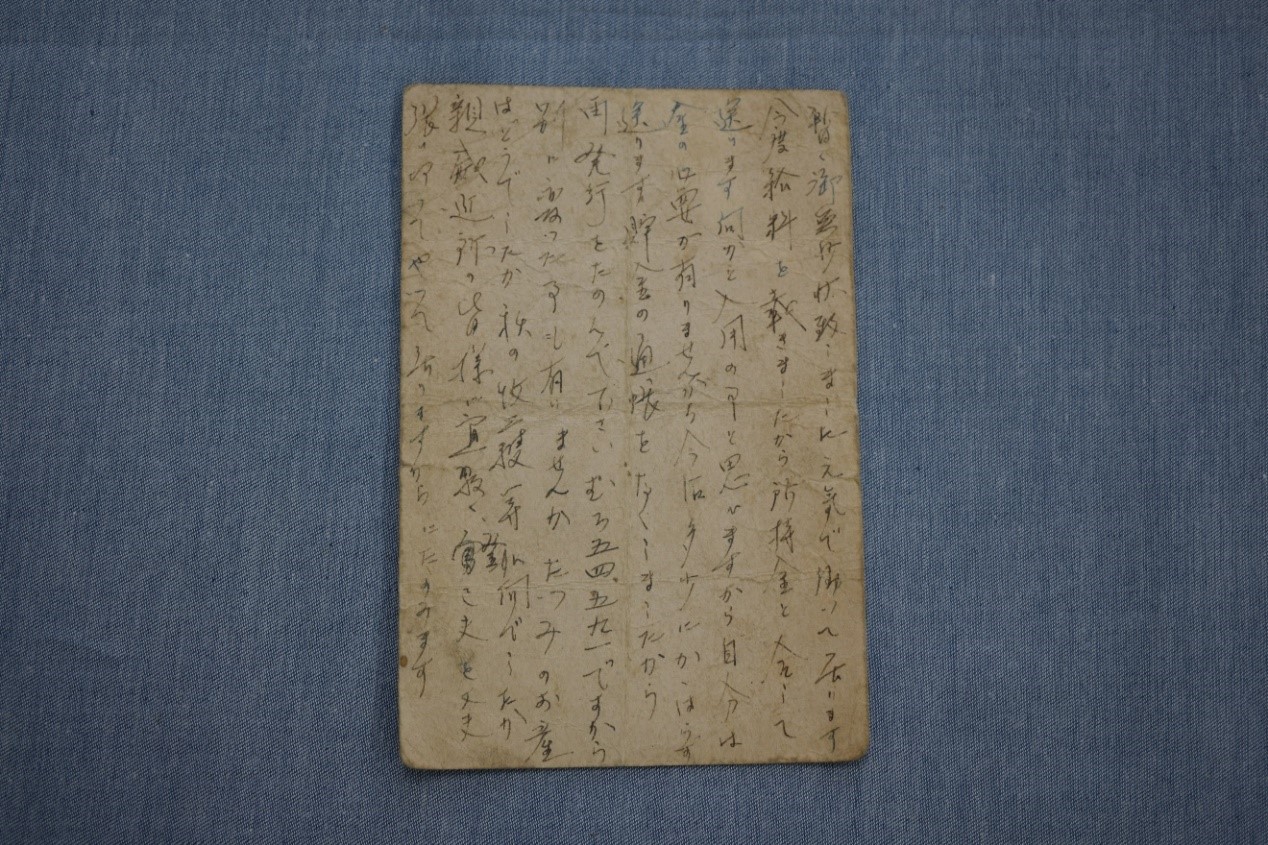 暫く御無沙汰致しました元気で働いて居ります
今度給料を戴きましたから所持金と合して
送ります何かと入用の事と思ひますから自分は
金の必要が有りませんから今后多少にかゝはらず
送ります貯金の通帳を なくしましたから
再発行をたのんで下さい むろ五四五九一ですから
別に変った事も有りませんか たつみのお産
はどうでしたか秋の収穫等 如何でしたか
親戚近所の皆様に宜敷く 丈夫
張り切ってやって居りますから にたのみます